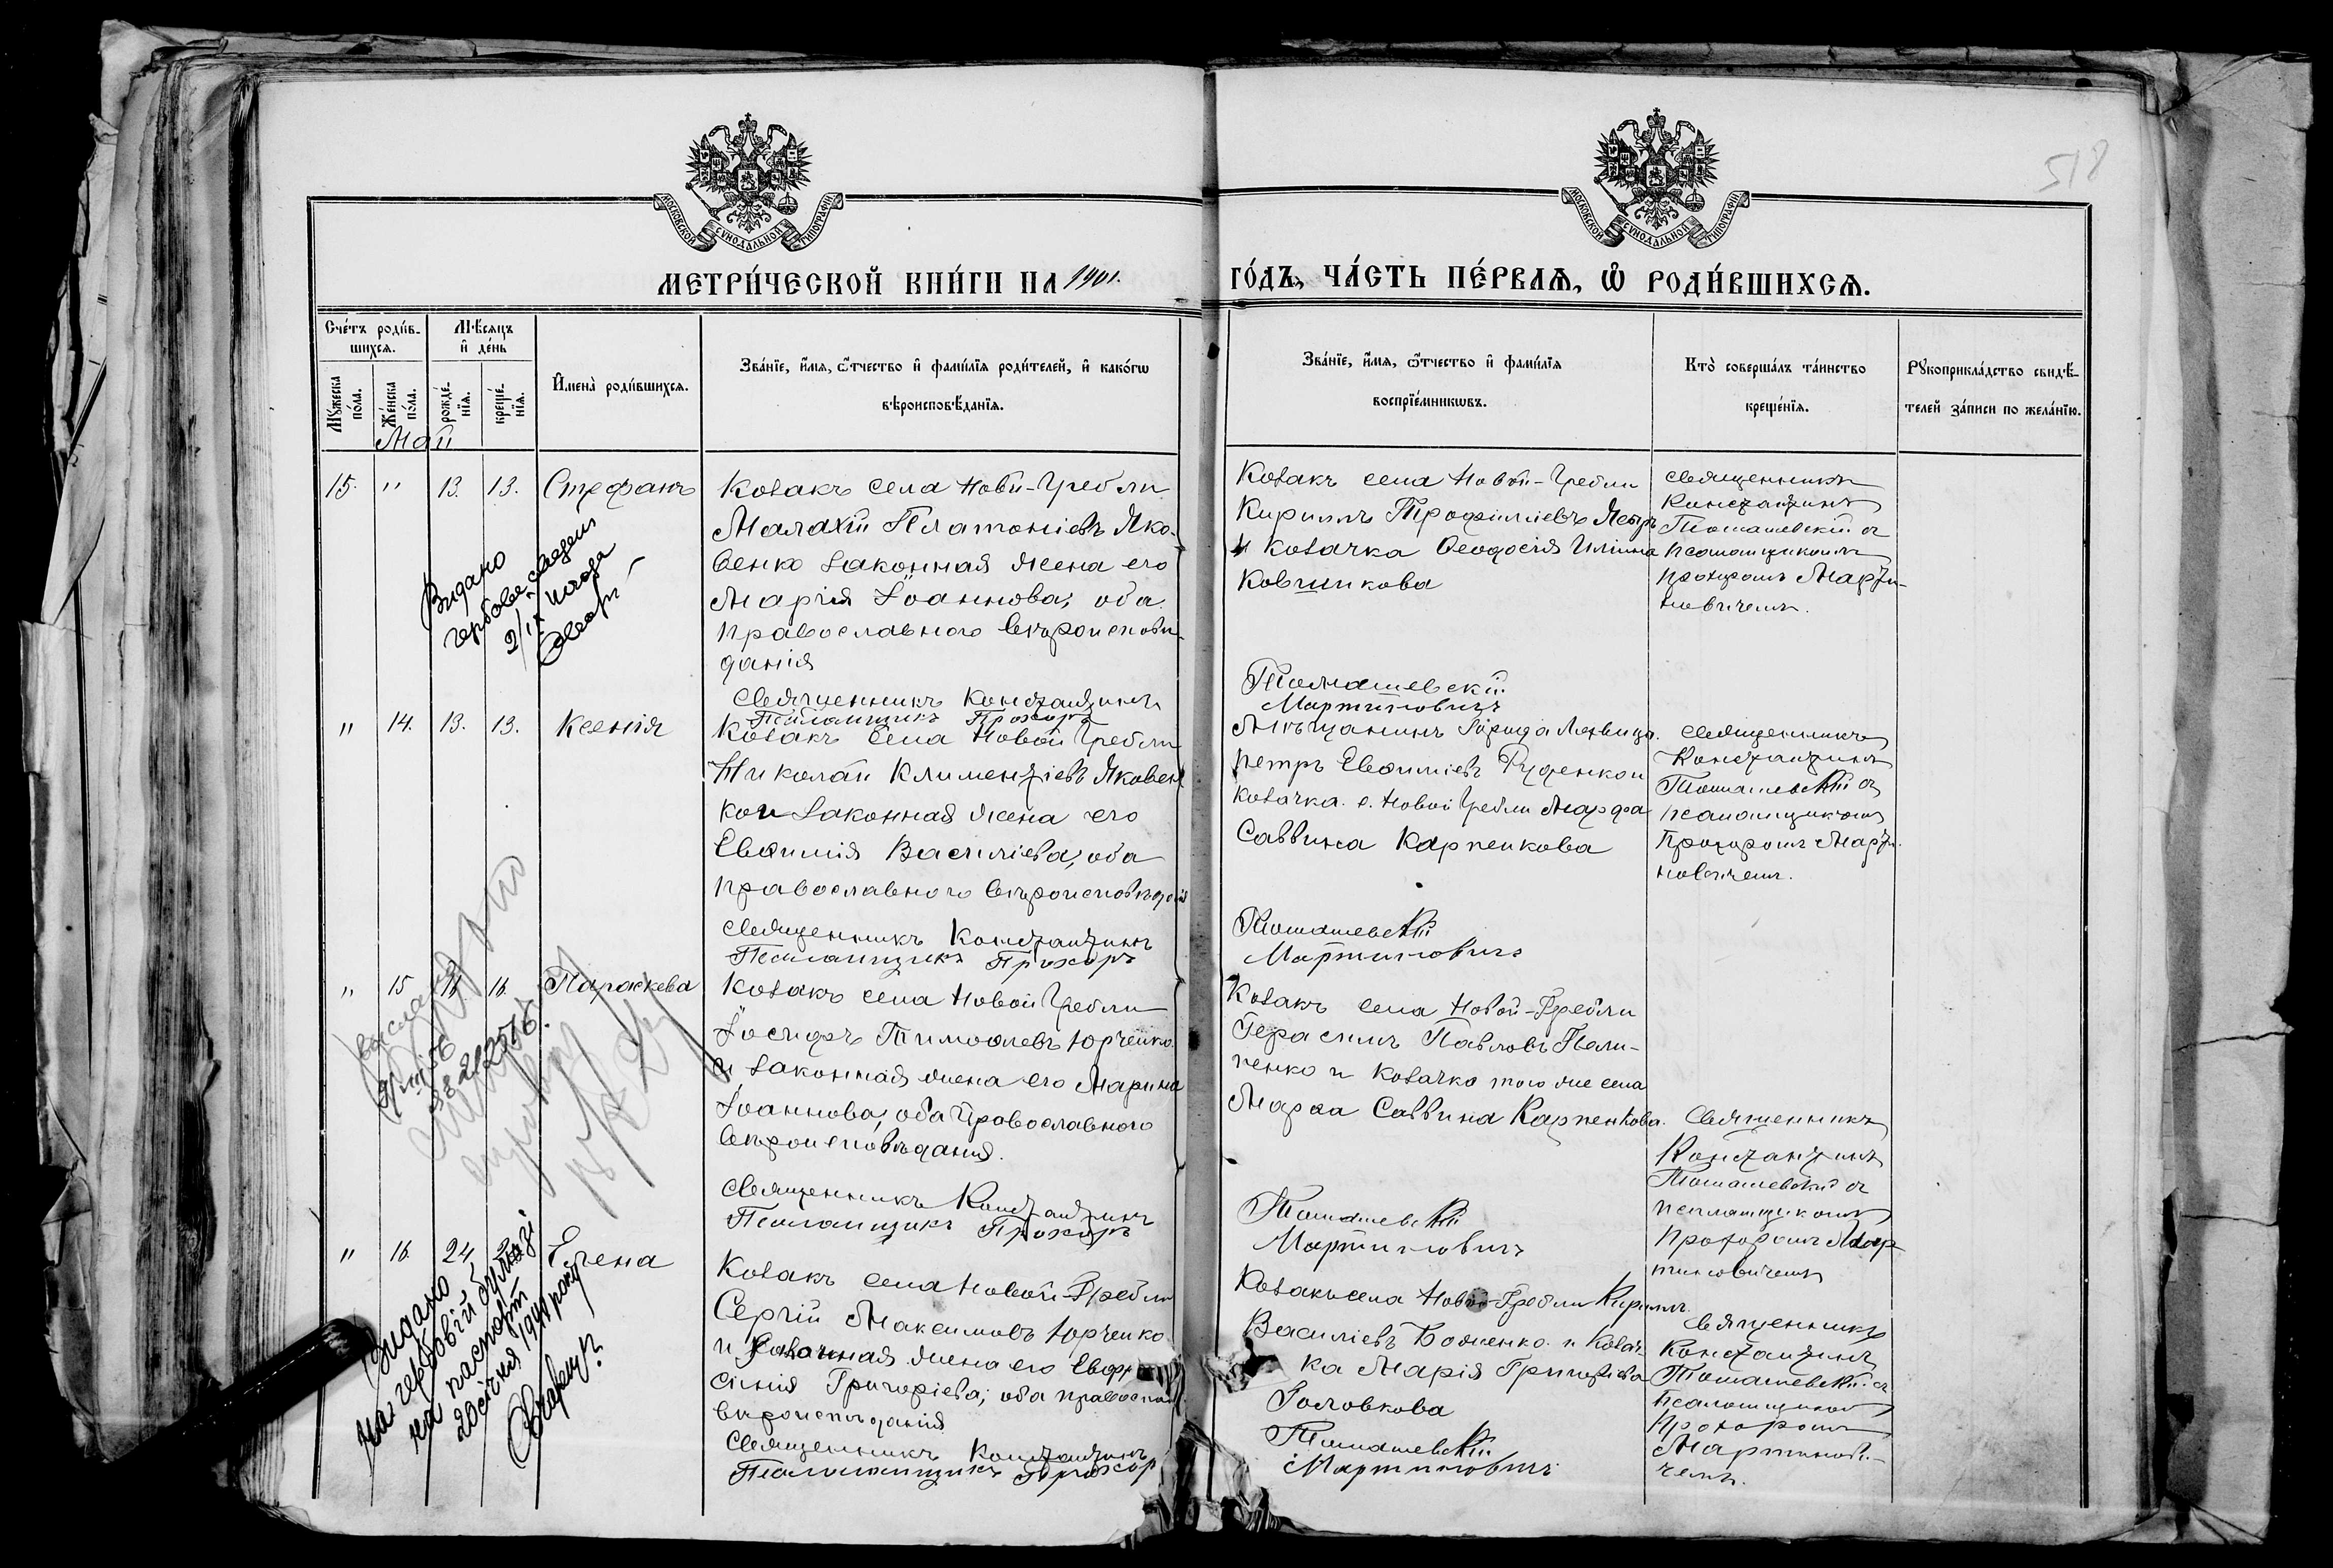 518
МОСКОВСКОЙ СѴНОДАЛЬНОЙ ТИПОГРАФІИ
МОСКОВСКОЙ СѴНОДАЛЬНОЙ ТИПОГРАФІИ
МЕТРИ́ЧЕСКОЙ КНИ́ГИ НА 1901.
ГО́ДЪ, ЧА́СТЬ ПЕ́РВАѦ, Ѡ҆ РОДИ́ВШИХСѦ.
Сче́тъ роди́в-
шихсѧ.
Мꙋжеска
по́ла.
Же́нска
по́ла.
Мѣ́сѧцъ
и҆ де́нь
рожде́-
нїѧ.
креще́-
нїѧ.
И҆мена̀ роди́вшихсѧ.
Зва́нїе, и҆́мѧ, ѻ҆́тчество и҆ фами́лїѧ роди́телей, и҆ како́гѡ
вѣроисповѣ́данїѧ.
Зва́нїе, и҆́мѧ, ѻ҆́тчество и҆ фами́лїѧ
воспрїе́мникѡвъ.
Кто̀ соверша́лъ та́инство
креще́нїѧ.
Рꙋкоприкла́дство свидѣ́-
телей за́писи по жела́нїю.
Май
15. " 13. 13. Стефанъ
Козакъ села Новой-Гребли
Малахій Платоніевъ Яко-
венко законная жена его
Марія Іоаннова; оба
православнаго вѣроисповѣ-
данія
Священникъ Константинъ
Псаломщикъ Прохоръ
Козакъ села Новой-Гребли
Кириллъ Трофиміевъ
и козачка Ѳеодосія Иліина
Ковшикова
Томашевскій
Мартиновичъ
Священникъ
Константинъ
Томашевскій съ
псаломщикомъ
Прохоромъ Марти-
новичемъ.
Видано
2/IX
" 14. 13. 13. Ксенія
Козакъ села Новой Гребли
Николай Климентіевъ Яковен
ко и законная жена его
Евѳимія Василіева, оба
православнаго вѣроисповѣданія
Священникъ Константинъ
Псаломщикъ Прохоръ
Мѣщанинъ города
Петръ Евѳиміевъ Руденко и
козачка с. Новой Гребли Марфа
Саввина Карпенкова
Томашевскій
Мартиновичъ
Священникъ
Константинъ
Томашевскій съ
псаломщикомъ
Прохоромъ Марти-
новичемъ.
" 15 16. 16. Параскева
Козакъ села Новой Гребли
Іосифъ Тимоѳеевъ Юрченко
и законная жена его Марина
Іоаннова, оба Православнаго
вѣроисповѣданія.
Священникъ Константинъ
Псаломщикъ Прохоръ
Козакъ села Новой-Гребли
Герасимъ Павловъ Пали-
пенко и козачка того же села
Марѳа Саввина Карпенкова.
Томашевскій
Мартиновичъ
Священникъ
Константинъ
Томашевскій съ
псаломщикомъ
Прохоромъ Мар-
тиновичемъ
" 16 24 Елена
Козакъ села Новой-Гребли
Сергій Максимовъ Юрченко
и законная жена его Евфро
синія Григоріева; оба православ
вѣроисповѣданія
Священникъ Константинъ
Псаломщикъ Прохоръ
Козакъ села Новой-Гребли Кириллъ
Василіевъ Боженко и козач-
ка Марія Григоріева
Головкова
Томашевскій
Мартиновичъ
Священникъ
Константинъ
Томашевскій съ
псаломщикомъ
Прохоромъ
Мартинови-
чемъ.
Видано
на гербовій бумазі
на паспорт
20 січня 1941 року